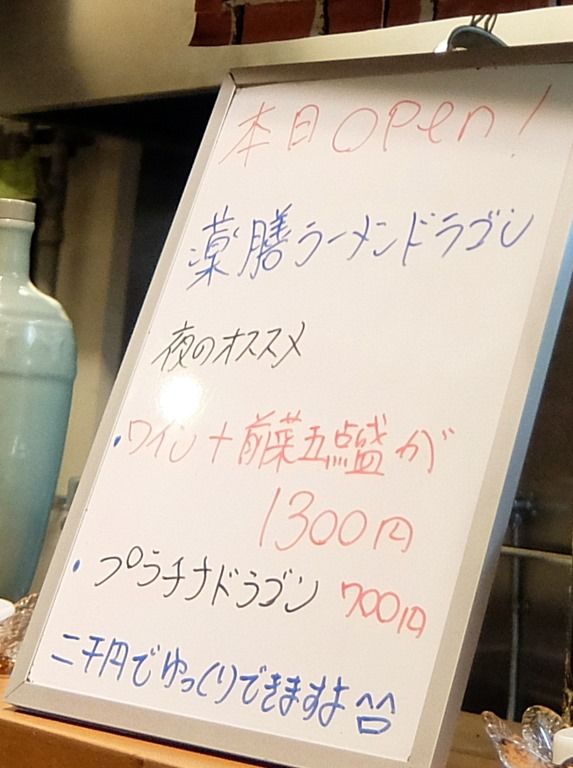 本日open!
薬膳ラーメンドラゴン
夜のオススメ
・ワイン+前菜五点盛が
1300円
・プラチナドラゴン 700円
二千円でゆっくりできますよ^^